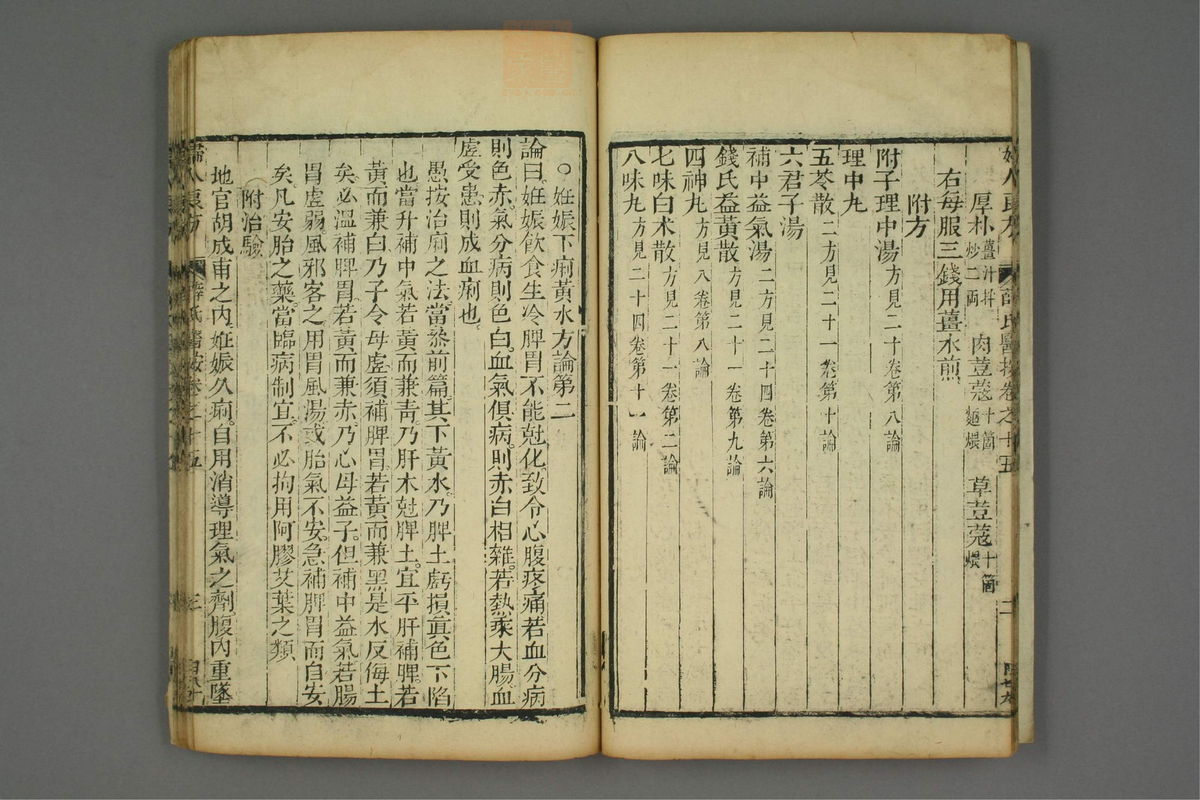 厚朴薑汁拌炒二兩 肉荳蔻十箇麵煨 草荳蔻十箇煨
右每服三錢用薑水煎
附方
附子理中湯方見二十卷第八論
理中丸
五苓散二方見二十一卷第十論
六君子湯
補中益氣湯二方見二十四卷第六論
錢氏益黃散方見二十一卷第九論
四神丸方見八卷第八論
七味白术散方見二十一卷第二論
八味丸方見二十四卷第十一論
○妊娠下痢黃水方論第二
論曰妊娠飲食生冷脾胃不能尅化致令心腹疼痛若血分病
則色赤氣分病則色白血氣俱病則赤白相雜若熱乘大腸血
虛受患則成血痢也
愚按治痢之法當叅前篇其下黃水乃脾土虧損眞色下陷
也當升補中氣若黃而兼靑乃肝木尅脾土宜平肝補脾若
黃而兼白乃子令母虛須補脾胃若黃而兼黑是水反侮土
矣必溫補脾胃若黃而兼赤乃心母益子但補中益氣若腸
胃虛弱風邪客之用胃風湯或胎氣不安急補脾胃而自安
矣凡安胎之藥當臨病制宜不必拘用阿膠艾葉之類
附治驗
地官胡成甫之內妊娠久痢自用消導理氣之劑腹內重墜